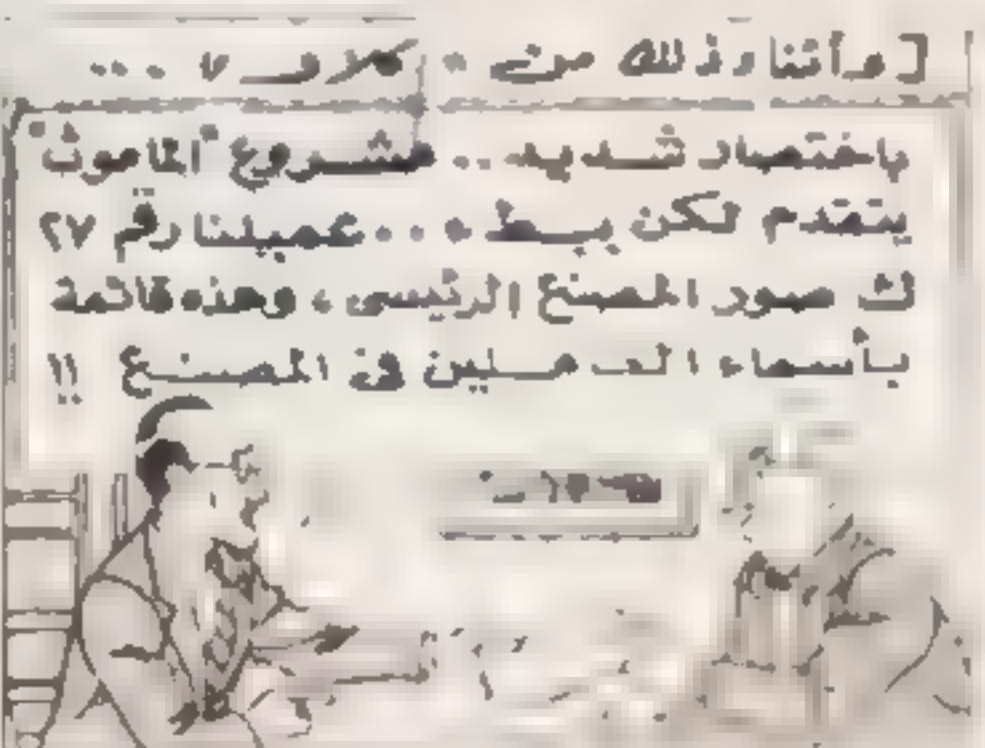 وأثناء ذلك من . . . ٧ . . .
باختصار شديد .. مشروع الماموث
يتقدم لكن ببطء . . . عميلنا رقم ٢٧
صور المصنع الرئيسى ، وهذه قائمة
بأسماء العاملين فى المصنع !!